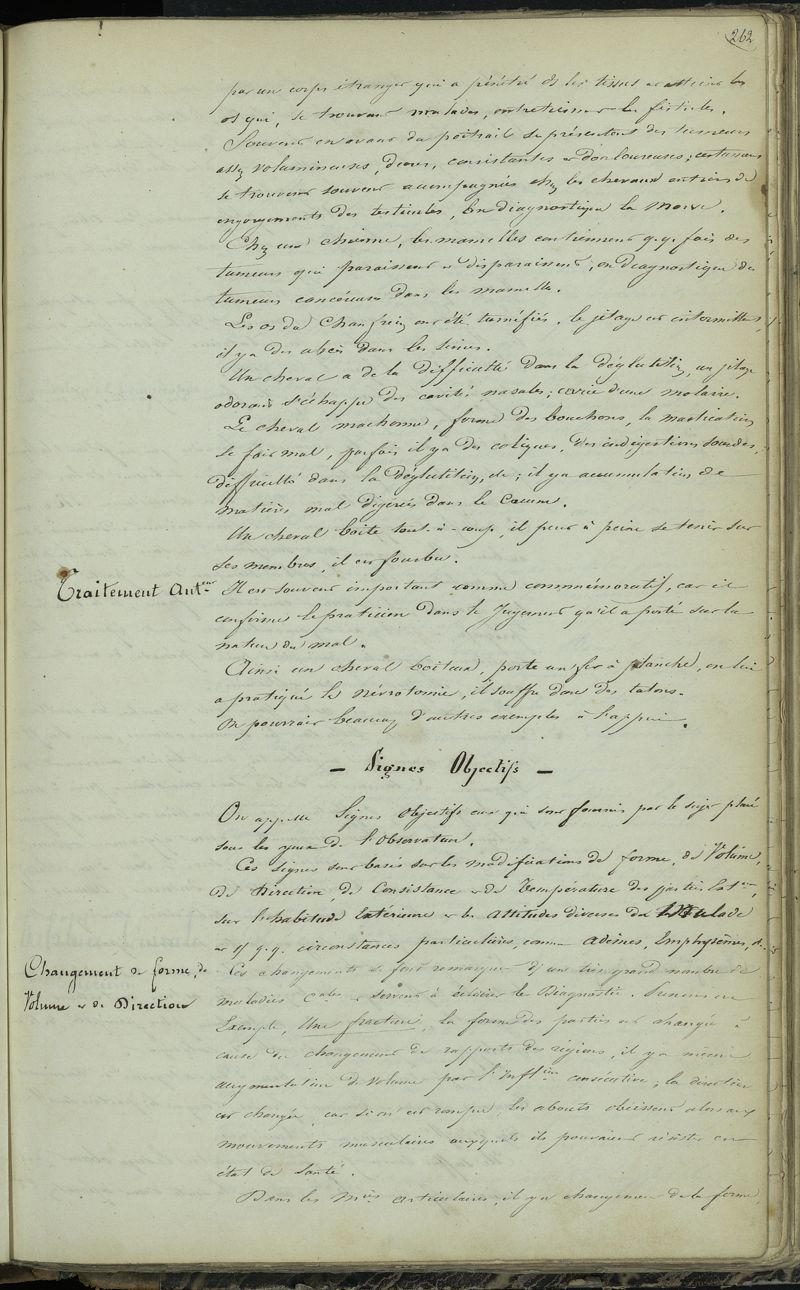 262
par un corps étranger qui a pénétré ds les tissus et atteint les
os qui, se trouvant malades, entretiennent la fistule.
Souvent en avant du poitrail se présentent des tumeurs
assez volumineuses, dures, consistantes et douloureuses; certaines
se trouvent souvent accompagnés chez les chevaux entiers de
engorgements des testicules, on diagnostique la Morve.
Chez une chienne, les mamelles contiennent q.q. fois des
tumeurs qui paraissent et disparaissent, on diagnostique des
tumeurs cancéreuses dans les mamelles.
Les os du Chanfrein ont été tuméfiés, le jetage est intermittent,
il y a des abcès dans les sinus.
Un cheval a de la difficulté dans la déglutition, un jetage
odorant s'échappe des cavités nasales; carie d'une molaire.
Le cheval machonne, forme des bouchons, la mastication
se fait mal, parfois il y a des coliques, des indigestions sourdes,
difficulté dans la déglutition, etc; il y a accumulation de
matières mal digérées dans le Cœcum.
Un cheval boite tout-à-coup, il peut à peine se tenir sur
ses membres, il est fourbu.
Traitement Anteur
Il est souvent important comme commémoratif, car il
confirme le praticien dans le Jugement qu'il a porté sur la
nature du mal.
Ainsi un cheval boiteux, porte un fer à planche, on lui
a pratiqué la névrotomie, il souffre donc des talons.
On pourrait beaucoup d'autres exemples à l'appui.
— Signes Objectifs —
On appelle Signes Objectifs ceux qui sont fournis par le sujet placé
sous les yeux de l'Observateur.
Ces signes sont basés sur les modifications de forme, de Volume,
de Direction, de Consistance et de Température des parties
sur l'habitude Extérieure et les Attitudes diverses du Malade
et q.q. circonstances particulières, comme Œdèmes, Emphysèmes, etc.
Changement de forme, de
Volume et de Direction
Ces changements se font remarquer ds un très grand nombre de
maladies et servent à éclairer le Diagnostic. Prenons en
Exemple, Une fracture, la forme des parties est changée à
cause du changement de rapports des régions, il y a même
augmentation de Volume par l'Inftion consécutive, la direction
est changée, car si on est rompu, les abouts obéissent alors aux
mouvements musculaires auxquels ils pouvaient résister en
état de Santé.
Dans les Mies articulaires, il y a changement de la forme,